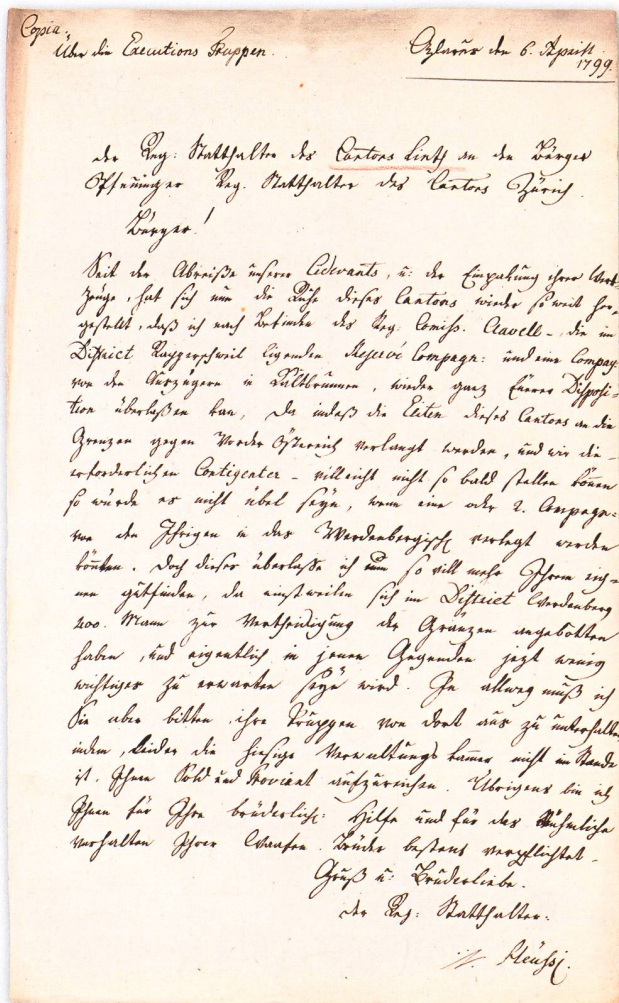 Copia.
Über die Executions Truppen. Glarus den 6. Aprill.
1799.
der Reg: Statthalter des Cantons Linth an den Bürger
Pfenninger Reg. Statthalter des Cantons Zürich.
Bürger!
Seit der Abreiße unserer Cidevants, u: der Einpakung ihrer Werk-
zeuge, hat sich nun die Ruhe dieses Cantons wieder so weit her-
gestellt, daß ich nach Befinden des Reg. Comiss. die im
District Rapperschweil ligenden Reserve Compagn: und eine Compag:
von den Auszügern in Kaltbrunnen, wieder ganz Euerer Disposi-
tion überlaßen kan, Da indeß die Eliten dieses Cantons an die
Grenzen gegen Vorder Östereich verlangt werden, und wir die
erforderlichen Contigenter villeicht nicht so bald stellen können
so würde es nicht übel seyn, wenn eine oder 2. Compagn:
von den Ihrigen in das Werdenbergisch verlegt werden
könten. Doch dieses überlaße ich um so vill mehr Ihrem eig-
nen gutfinden, da einstweilen sich im District Werdenberg
200. Mann zur Vertheidigung der Gränzen angebotten
haben, und eigentlich in jenen Gegenden jezt wenig
wichtiges zu erwarten seyn wird. In allweg muß ich
Sie aber bitten, ihre Truppen von dort aus zu unterhalten
indem, Leider die hiesige Verwaltungs kamer nicht im Stande
ist. Ihnen Sold und Proviant aufzureichen. Übrigens bin ich
Ihnen für Ihre brüderlich: Hilfe und für das Rühmliche
verhalten Ihrer Waafen Brüder bestens verpflichtet.
Gruß u: Bruderliebe.
der Reg: Statthalter.
Heussi.